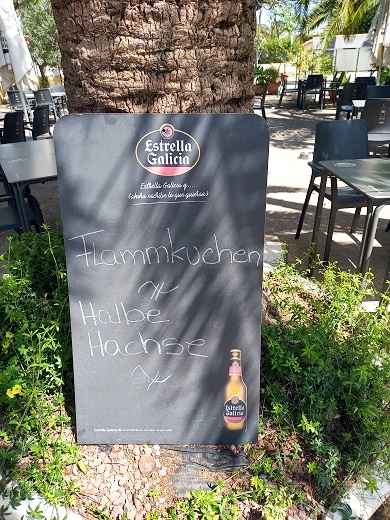 Estrella
Galicia
Estrella Galicia y....
(ahora escribe lo que quieras)
Flammkuchen
Halbe
Hachse
Estrella
Galicia